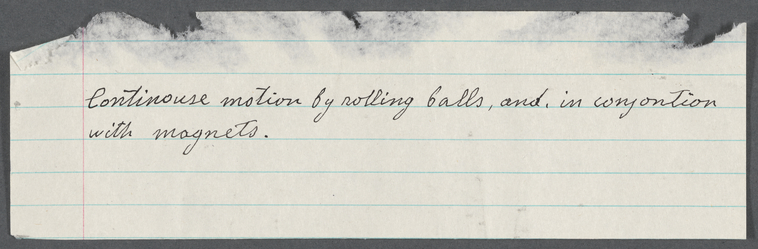 Continouse motion by rolling balls, and, in conjontion
with magnets.